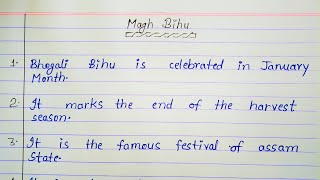 Magh Bihu
1. Bhogali Bihu is celebrated in January
Month.
2. It marks the end of the harvest
season.
3. It is the famous festival of assam
State.